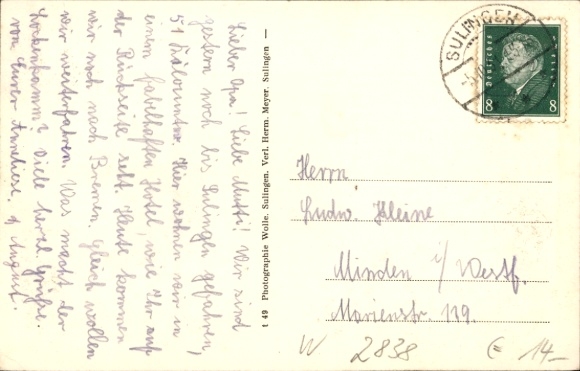 Lieber Opa! Liebe Mutti! Wir sind
gestern noch bis Sulingen gefahren,
51 Kilometer. Hier wohnen wir in
einem fabelhaften Hotel, wie Ihr auf
der Rückseite seht. Heute kommen
wir noch nach Bremen. Gleich wollen
wir weiterfahren. Was macht der
Lockenkamm? Viele herzl. Grüße.
von Eurer Anneliese. & August.
t 49 Photographie Wolle, Sulingen. Verl. Herm. Meyer, Sulingen —
SULINGEN
Deutsches Reich
8 8
Herrn
Ludw. Kleine
Minden i/Westf.
Marienstr. 119.
W 2838 € 14-